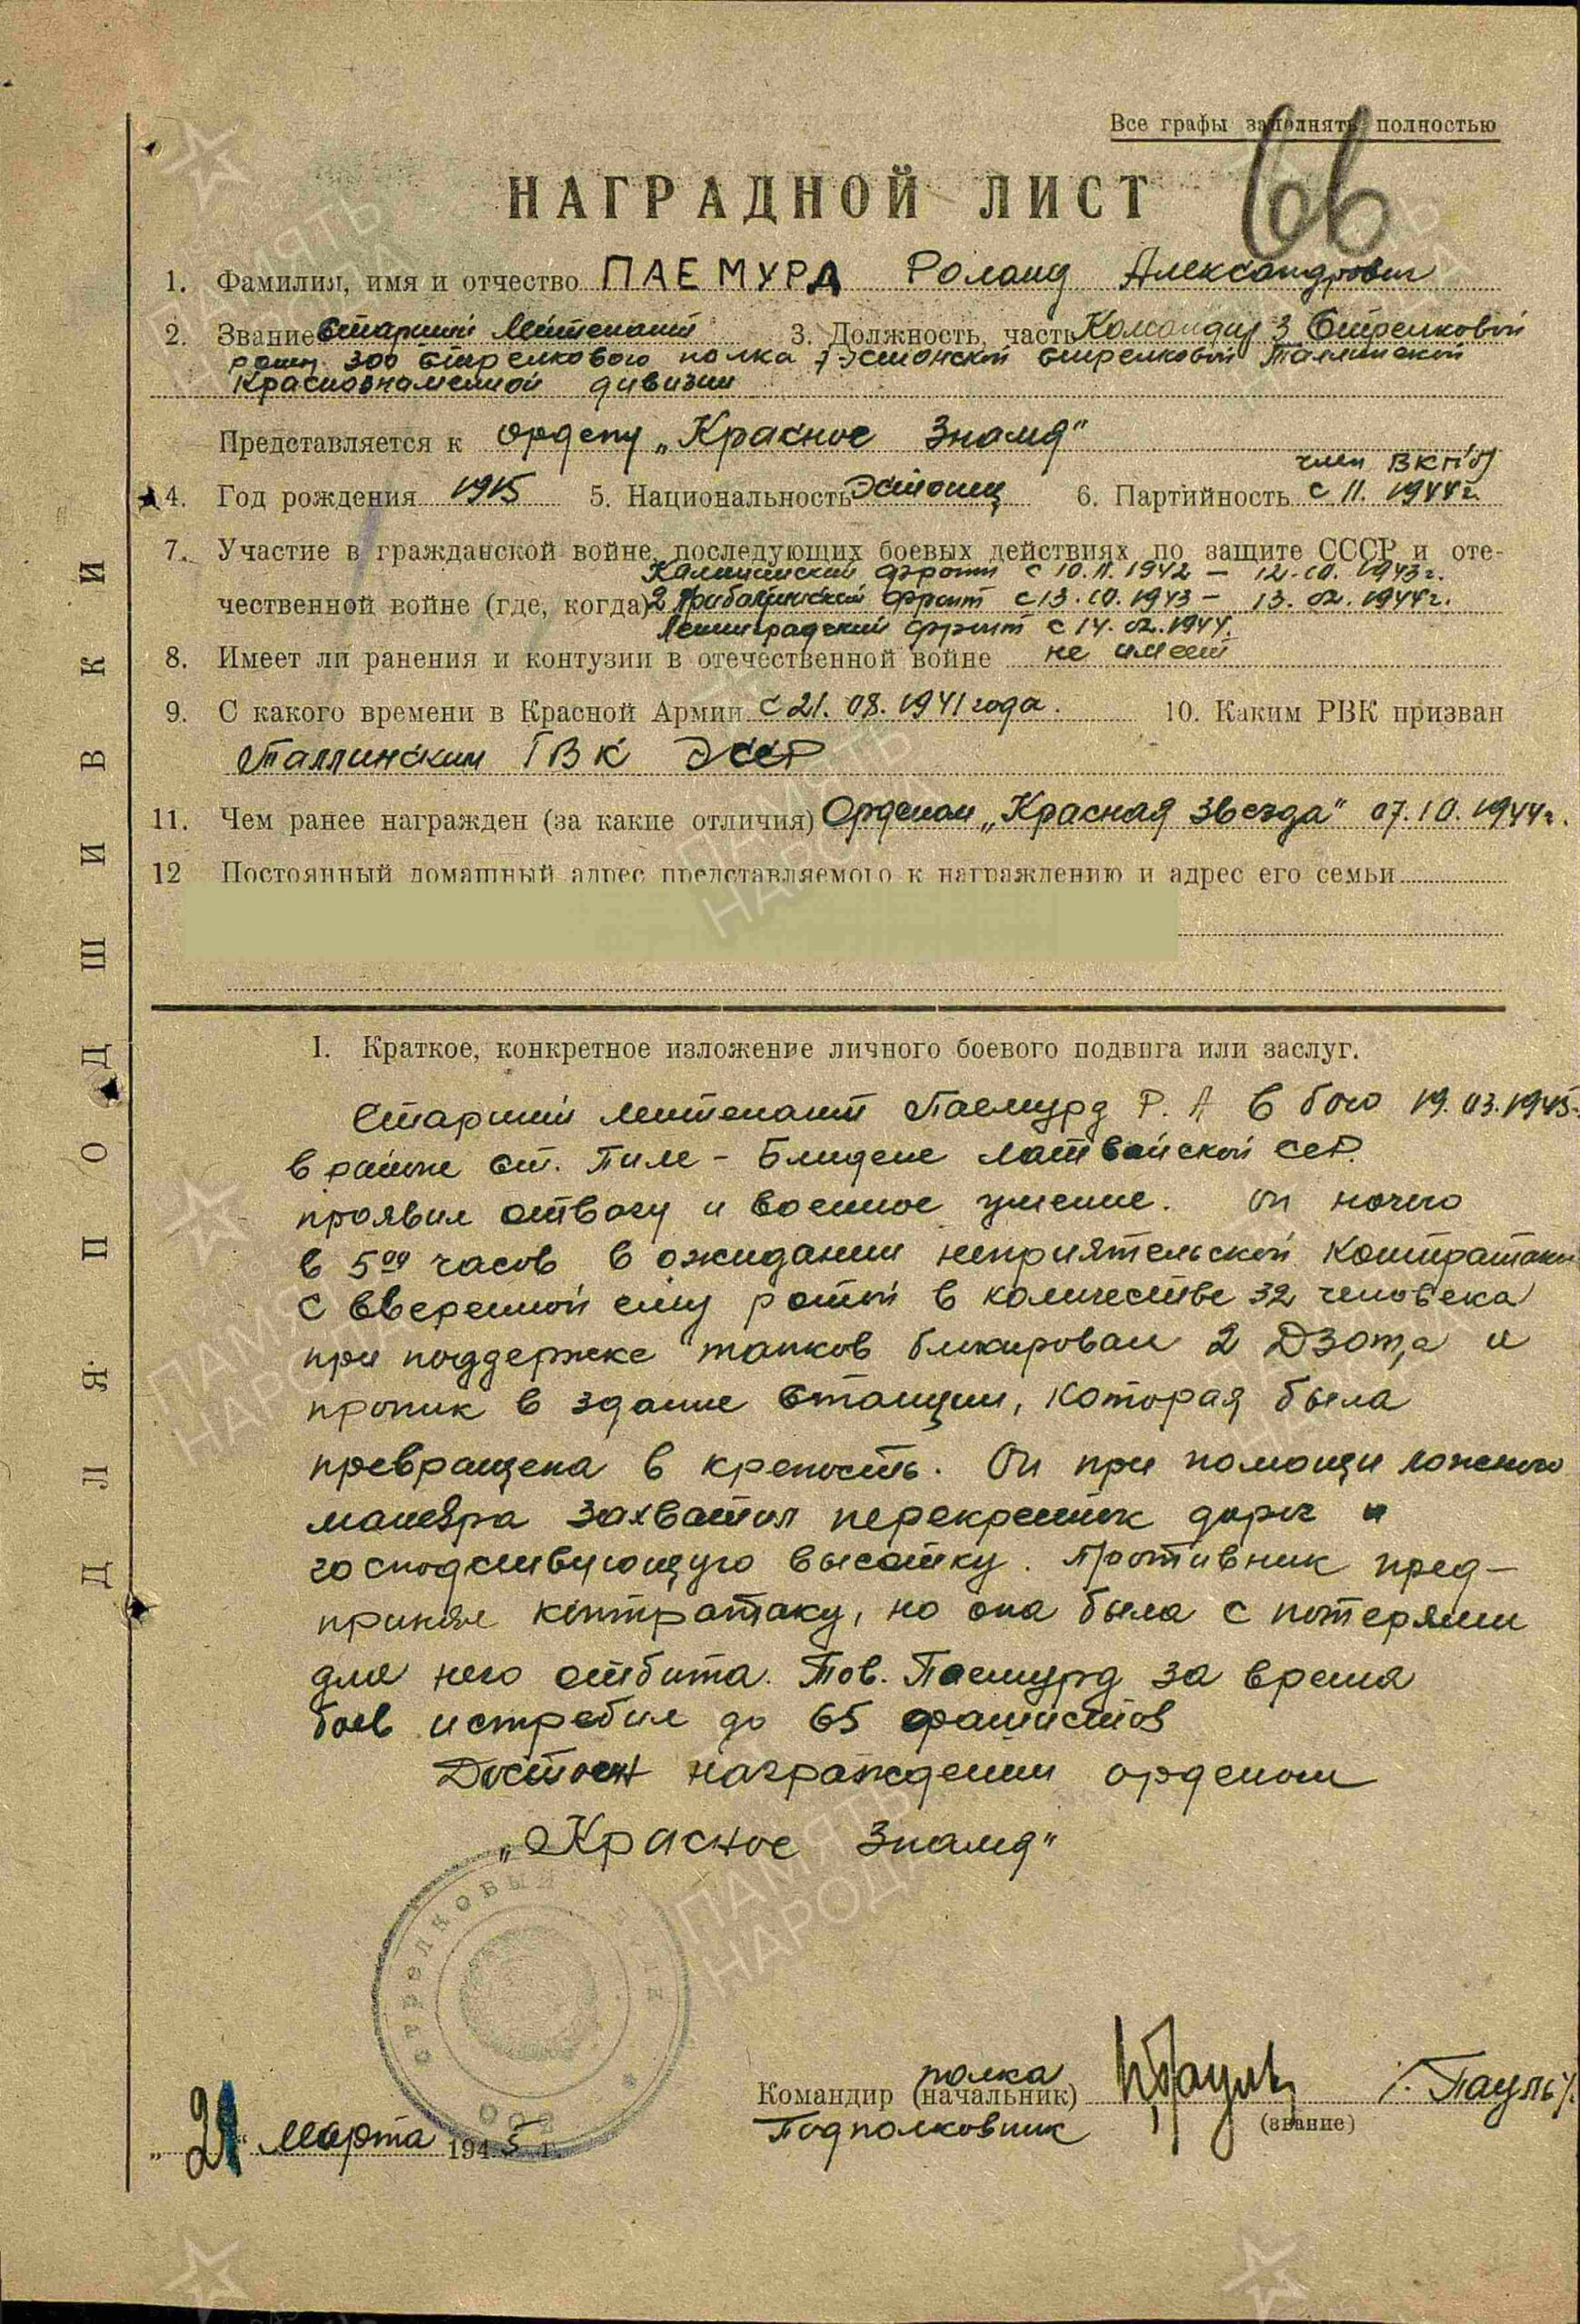 Все графы заполнять полностью
66
НАГРАДНОЙ ЛИСТ
1. Фамилия, имя и отчество ПАЕМУРД Роланд Александрович
2. Звание Старший Лейтенант 3. Должность, часть Командир 3 Стрелковой
роты 300 Стрелкового полка 7 Эстонской Стрелковой Таллинской
Краснознаменной дивизии
Представляется к ордену „Красное Знамя"
член ВКП(б)
4. Год рождения 1915 5. Национальность Эстонец 6. Партийность с 11. 1944г.
7. Участие в гражданской войне, последующих боевых действиях по защите СССР и оте-
Калининский фронт с 10.11.1942 – 12.10.1943г.
чественной войне (где, когда) 2 Прибалтийский фронт с 13.10.1943 – 13.02.1944г.
Ленинградский фронт с 14.02.1944.
8. Имеет ли ранения и контузии в отечественной войне не имеет
9. С какого времени в Красной Армии с 21.08.1941 года. 10. Каким РВК призван
Таллинским ГВК ЭССР
11. Чем ранее награжден (за какие отличия) Орденом „Красная Звезда" 07.10.1944г.
12 Постоянный домашный адрес представляемого к награждению и адрес его семьи
I. Краткое, конкретное изложение личного боевого подвига или заслуг.
Старший лейтенант Паемурд Р. А в бою 19.03.1945
в районе ст. Пиле – Блидене Латвийской ССР.
проявил отвагу и военное умение. Он ночью
в 5⁰⁰ часов в ожидании неприятельской контратаки
с вверенной ему ротой в количестве 32 человека
при поддержке танков блокировал 2 ДЗОТ,а и
проник в здание станции, которая была
превращена в крепость. Он при помощи ложного
маневра захватил перекресток дорог и
господствующую высотку. Противник пред-
принял контратаку, но она была с потерями
для него отбита. Тов. Паемурд за время
боев истребил до 65 фашистов
Достоен награждении орденом
„Красное Знамя"
стрелковый полк
300
полка
Командир (начальник) /. Пауль/.
Подполковник (звание)
„21" Марта 1945 г.
ДЛЯ ПОДШИВКИ
ПАМЯТЬ НАРОДА